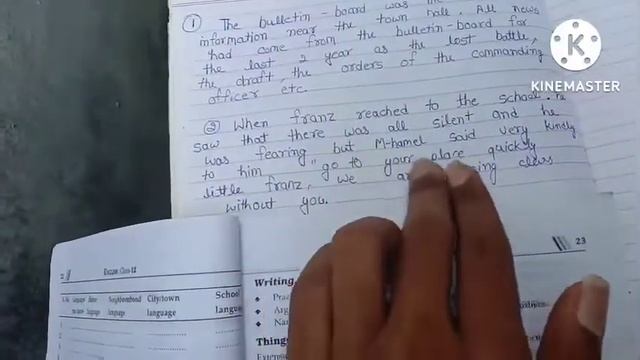 ① The bulletin-board was
information near the town hall. All news
had come from the bulletin-board for
the last 2 year as the lost battle,
the draft, the orders of the commanding
officer etc.
② When franz reached to the school. he
saw that there was all silent and he
was fearing but M-hamel said very kindly
to him "go to your place quickly
little franz, we class
without you.
KINEMASTER
23
Class-12
S.No
Neighbourhood
language
City/town
language
School
Writing
Things